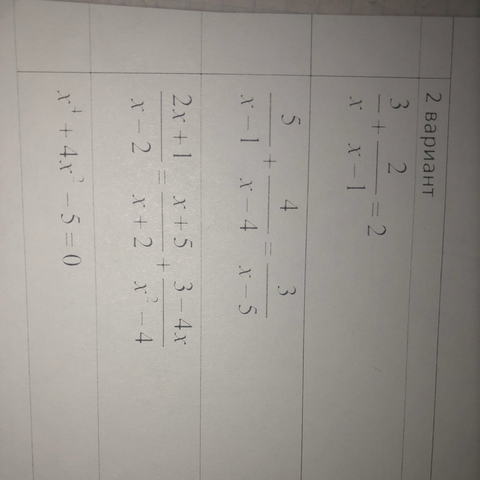 2 вариант
3/x + 2/(x − 1) = 2
5/(x − 1) + 4/(x − 4) = 3/(x − 5)
(2x + 1)/(x − 2) = (x + 5)/(x + 2) + (3 − 4x)/(x² − 4)
x⁴ + 4x² − 5 = 0